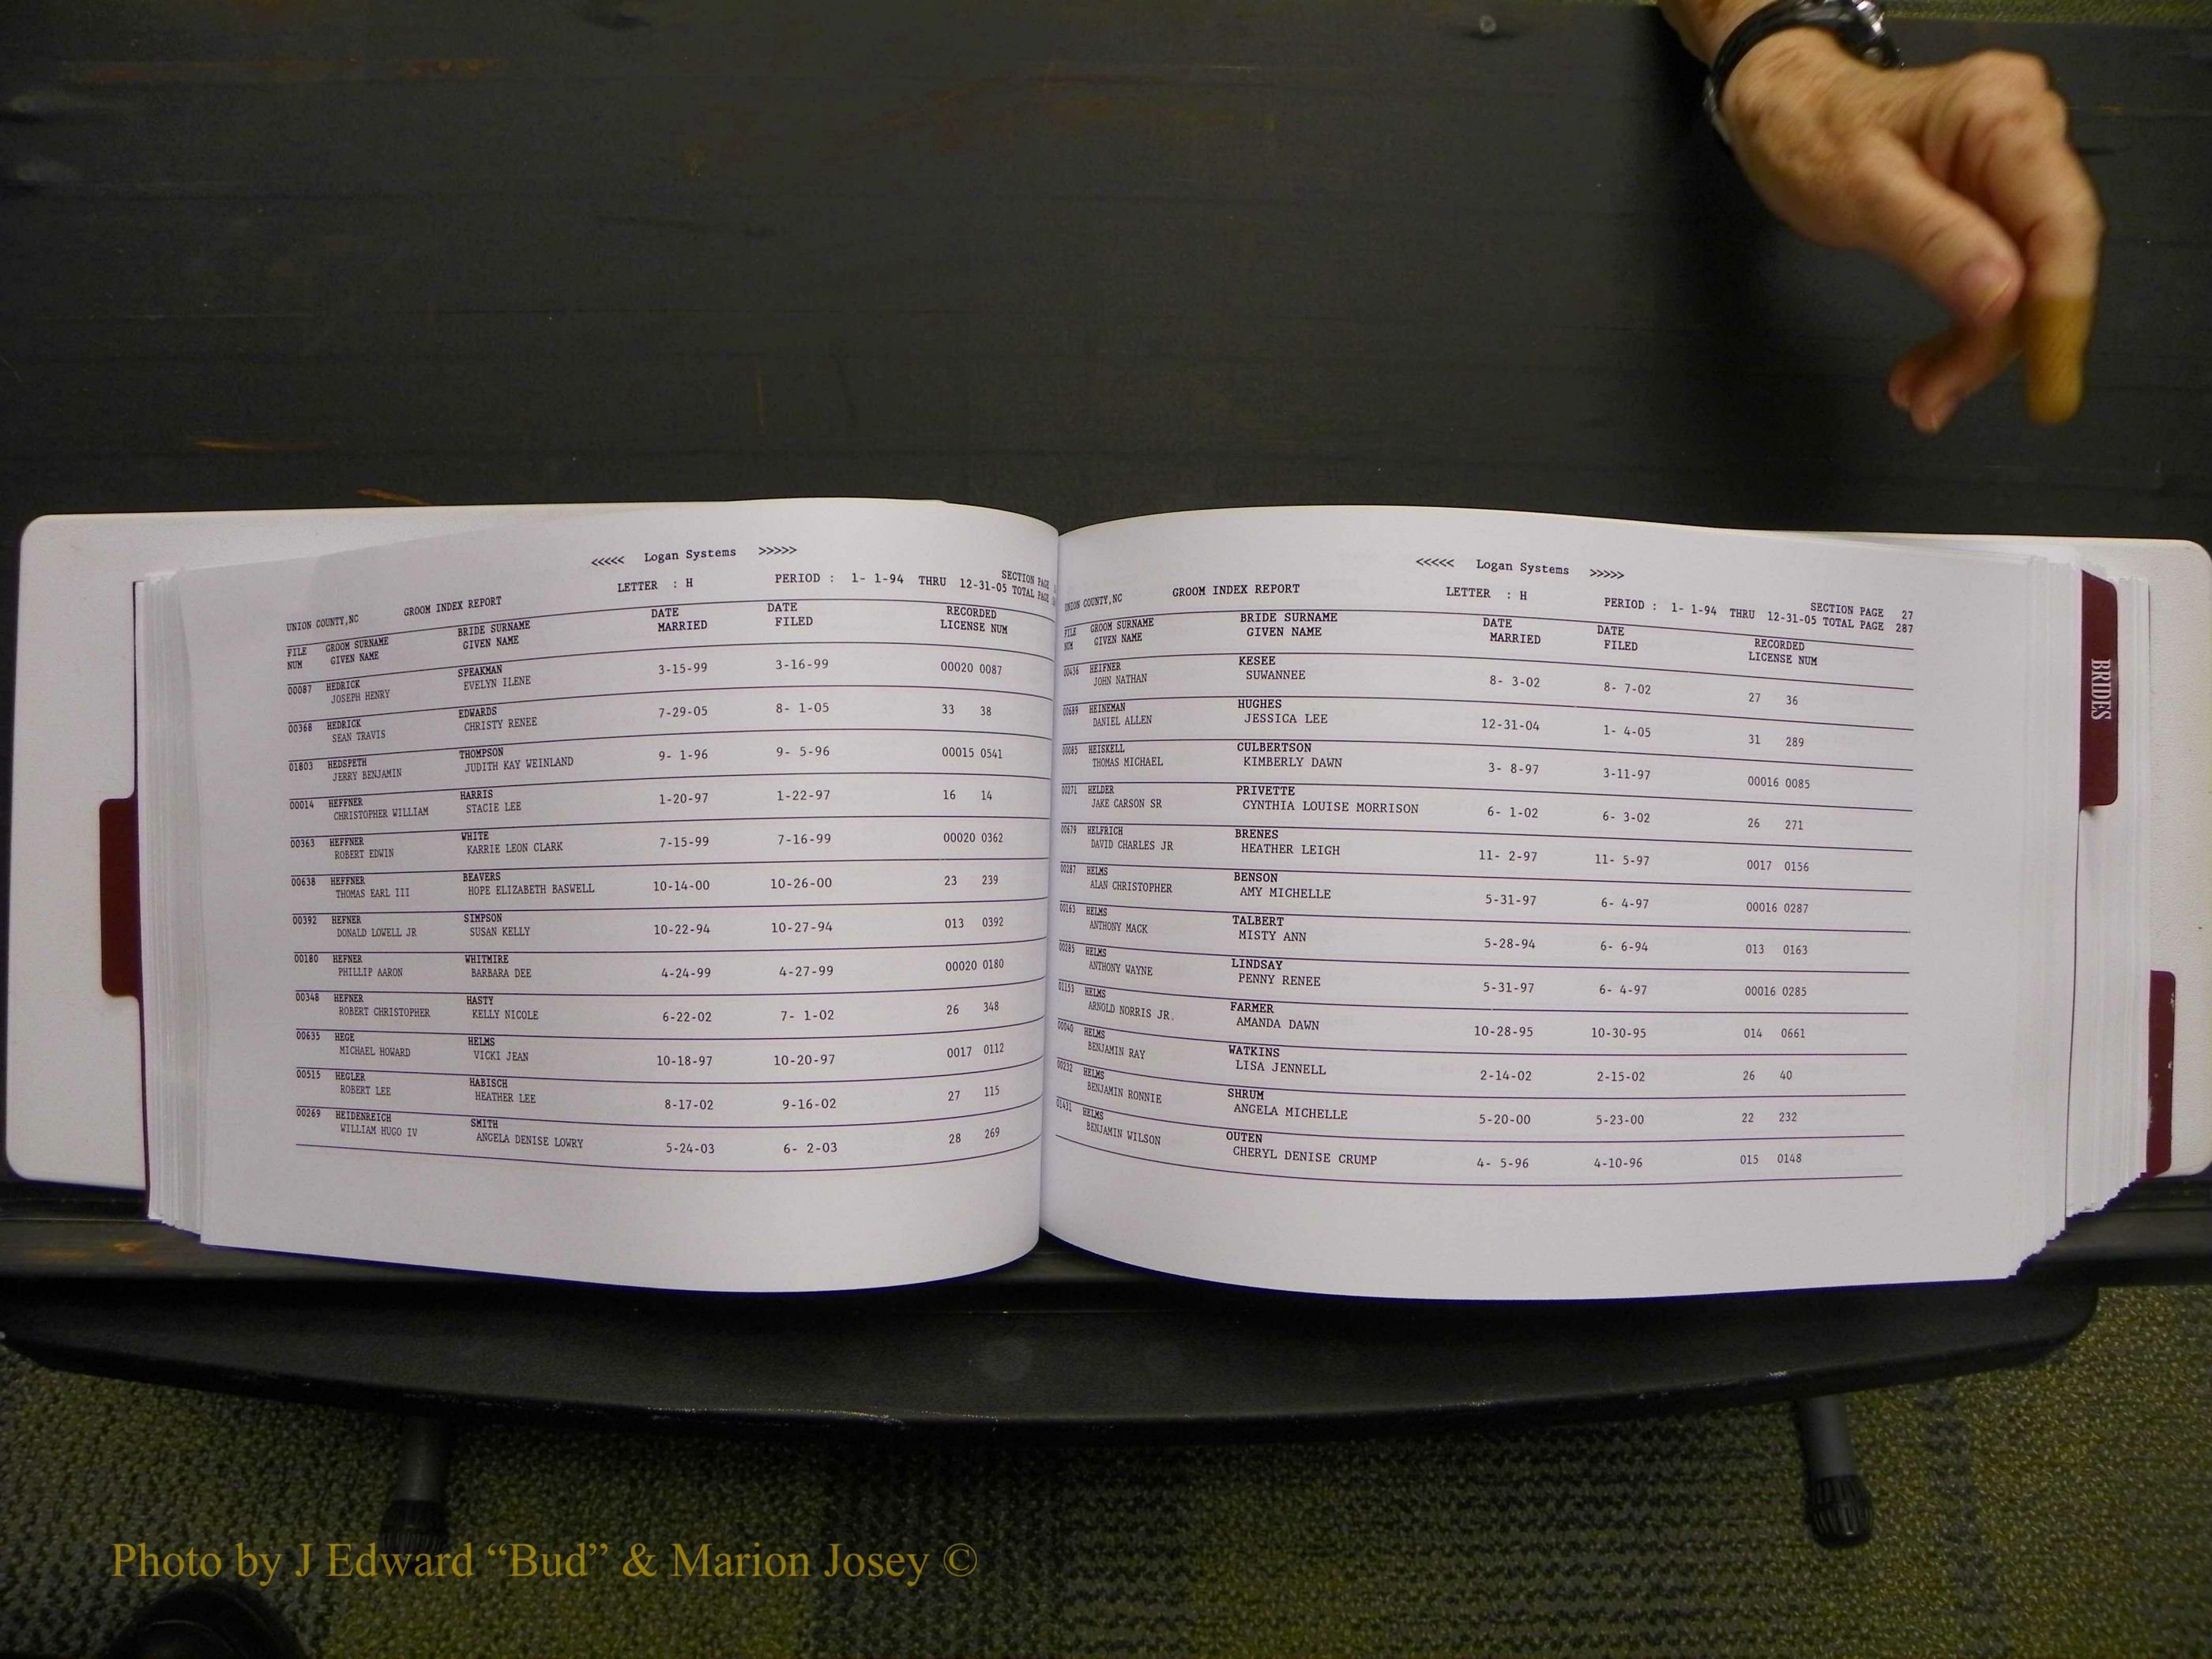 <<<<< Logan Systems >>>>>
UNION COUNTY,NC GROOM INDEX REPORT LETTER : H PERIOD : 1- 1-94 THRU 12-31-05 SECTION PAGE
TOTAL PAGE
FILE GROOM SURNAME BRIDE SURNAME DATE DATE RECORDED
NUM GIVEN NAME GIVEN NAME MARRIED FILED LICENSE NUM
00087 HEDRICK SPEAKMAN 3-15-99 3-16-99 00020 0087
JOSEPH HENRY EVELYN ILENE
00368 HEDRICK EDWARDS 7-29-05 8- 1-05 33 38
SEAN TRAVIS CHRISTY RENEE
01803 HEDSPETH THOMPSON 9- 1-96 9- 5-96 00015 0541
JERRY BENJAMIN JUDITH KAY WEINLAND
00014 HEFFNER HARRIS 1-20-97 1-22-97 16 14
CHRISTOPHER WILLIAM STACIE LEE
00363 HEFFNER WHITE 7-15-99 7-16-99 00020 0362
ROBERT EDWIN KARRIE LEON CLARK
00638 HEFFNER BEAVERS 10-14-00 10-26-00 23 239
THOMAS EARL III HOPE ELIZABETH BASWELL
00392 HEFNER SIMPSON 10-22-94 10-27-94 013 0392
DONALD LOWELL JR SUSAN KELLY
00180 HEFNER WHITMIRE 4-24-99 4-27-99 00020 0180
PHILLIP AARON BARBARA DEE
00348 HEFNER HASTY 6-22-02 7- 1-02 26 348
ROBERT CHRISTOPHER KELLY NICOLE
00635 HEGE HELMS 10-18-97 10-20-97 0017 0112
MICHAEL HOWARD VICKI JEAN
00515 HEGLER HABISCH 8-17-02 9-16-02 27 115
ROBERT LEE HEATHER LEE
00269 HEIDENREICH SMITH 5-24-03 6- 2-03 28 269
WILLIAM HUGO IV ANGELA DENISE LOWRY
<<<<< Logan Systems >>>>>
UNION COUNTY,NC GROOM INDEX REPORT LETTER : H PERIOD : 1- 1-94 THRU 12-31-05 SECTION PAGE 27
TOTAL PAGE 287
FILE GROOM SURNAME BRIDE SURNAME DATE DATE RECORDED
NUM GIVEN NAME GIVEN NAME MARRIED FILED LICENSE NUM
00436 HEIFNER KESEE 8- 3-02 8- 7-02 27 36
JOHN NATHAN SUWANNEE
00689 HEINEMAN HUGHES 12-31-04 1- 4-05 31 289
DANIEL ALLEN JESSICA LEE
00085 HEISKELL CULBERTSON 3- 8-97 3-11-97 00016 0085
THOMAS MICHAEL KIMBERLY DAWN
00271 HELDER PRIVETTE 6- 1-02 6- 3-02 26 271
JAKE CARSON SR CYNTHIA LOUISE MORRISON
00679 HELFRICH BRENES 11- 2-97 11- 5-97 0017 0156
DAVID CHARLES JR HEATHER LEIGH
00287 HELMS BENSON 5-31-97 6- 4-97 00016 0287
ALAN CHRISTOPHER AMY MICHELLE
00163 HELMS TALBERT 5-28-94 6- 6-94 013 0163
ANTHONY MACK MISTY ANN
00285 HELMS LINDSAY 5-31-97 6- 4-97 00016 0285
ANTHONY WAYNE PENNY RENEE
01153 HELMS FARMER 10-28-95 10-30-95 014 0661
ARNOLD NORRIS JR. AMANDA DAWN
00040 HELMS WATKINS 2-14-02 2-15-02 26 40
BENJAMIN RAY LISA JENNELL
00232 HELMS SHRUM 5-20-00 5-23-00 22 232
BENJAMIN RONNIE ANGELA MICHELLE
01431 HELMS OUTEN 4- 5-96 4-10-96 015 0148
BENJAMIN WILSON CHERYL DENISE CRUMP
BRIDES
Photo by J Edward “Bud” & Marion Josey ©